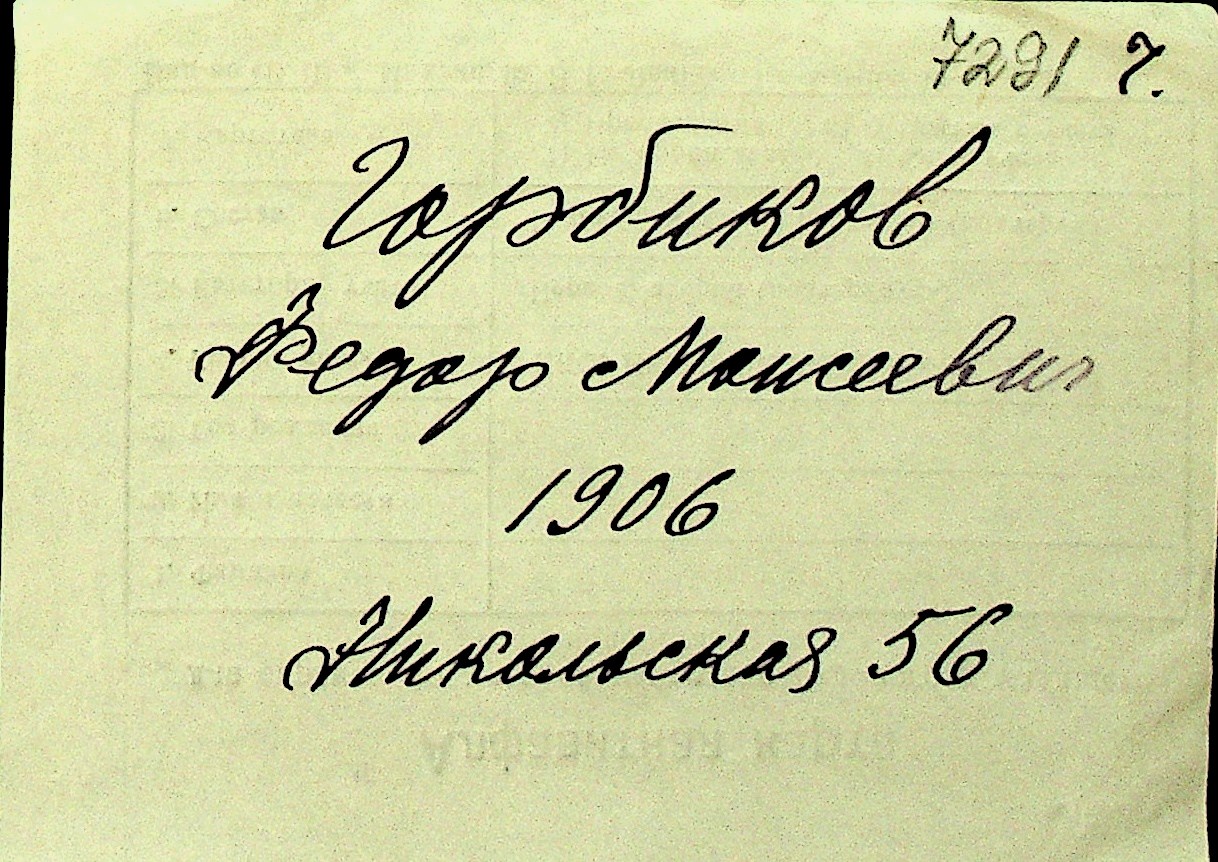 7291 7.
Горбиков
Федор Моисеевич
1906
Никольская 56